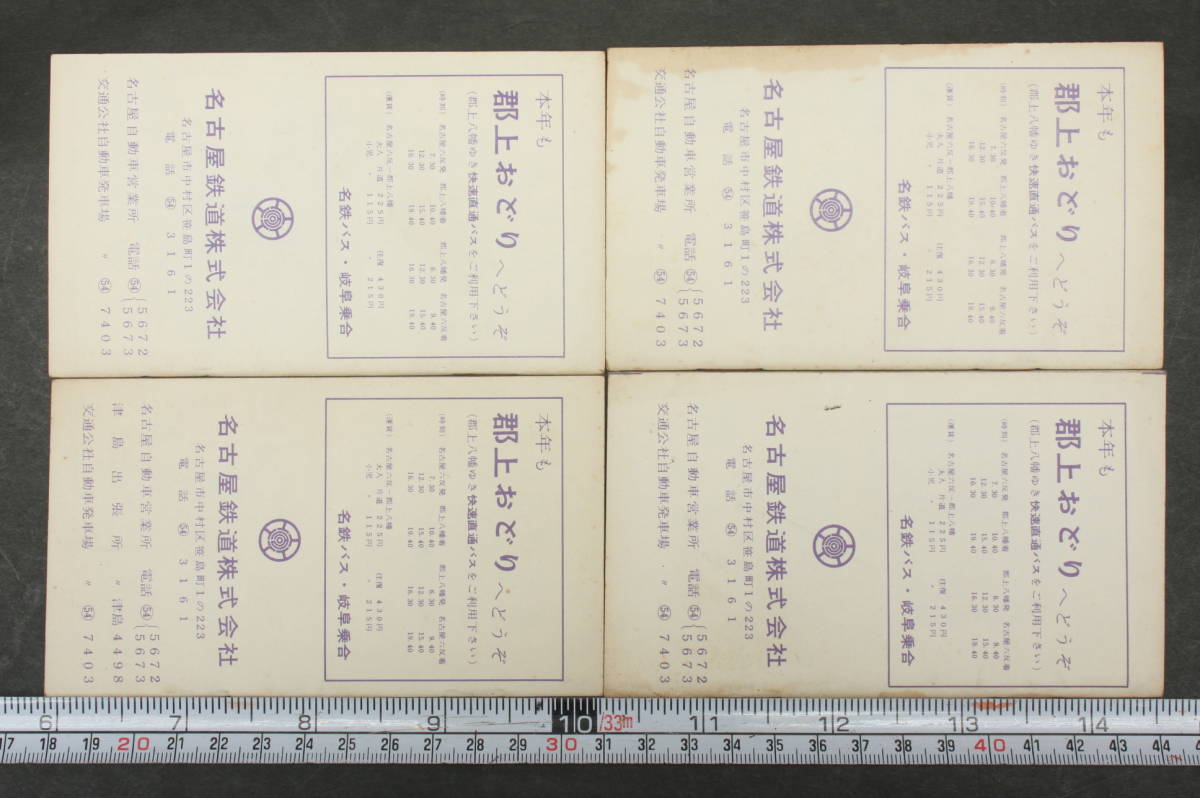 本年も
郡上おどりへどうぞ
(郡上八幡ゆき快速直通バスをご利用下さい)
(時刻) 名古屋六反発 郡上八幡着 郡上八幡発 名古屋六反着
7.30 10.40 6.30 9.40
12.30 15.40 12.30 15.40
16.30 19.40 16.30 19.40
(運賃) 名古屋六反―郡上八幡
大人 片道 225円 往復 430円
小児 〃 115円 〃 215円
名鉄バス・岐阜乗合
名古屋鉄道株式会社
名古屋市中村区笹島町1の223
電話 54 3161
名古屋自動車営業所 電話 54 {5672
5673
交通公社自動車発車場 〃 54 7403
本年も
郡上おどりへどうぞ
(郡上八幡ゆき快速直通バスをご利用下さい)
(時刻) 名古屋六反発 郡上八幡着 郡上八幡発 名古屋六反着
7.30 10.40 6.30 9.40
12.30 15.40 12.30 15.40
16.30 19.40 16.30 19.40
(運賃) 名古屋六反―郡上八幡
大人 片道 225円 往復 430円
小児 〃 115円 〃 215円
名鉄バス・岐阜乗合
名古屋鉄道株式会社
名古屋市中村区笹島町1の223
電話 54 3161
名古屋自動車営業所 電話 54 {5672
5673
交通公社自動車発車場 〃 54 7403
本年も
郡上おどりへどうぞ
(郡上八幡ゆき快速直通バスをご利用下さい)
(時刻) 名古屋六反発 郡上八幡着 郡上八幡発 名古屋六反着
7.30 10.40 6.30 9.40
12.30 15.40 12.30 15.40
16.30 19.40 16.30 19.40
(運賃) 名古屋六反―郡上八幡
大人 片道 225円 往復 430円
小児 〃 115円 〃 215円
名鉄バス・岐阜乗合
名古屋鉄道株式会社
名古屋市中村区笹島町1の223
電話 54 3161
名古屋自動車営業所 電話 54 {5672
5673
津島出張所 〃 津島 4498
交通公社自動車発車場 〃 54 7403
本年も
郡上おどりへどうぞ
(郡上八幡ゆき快速直通バスをご利用下さい)
(時刻) 名古屋六反発 郡上八幡着 郡上八幡発 名古屋六反着
7.30 10.40 6.30 9.40
12.30 15.40 12.30 15.40
16.30 19.40 16.30 19.40
(運賃) 名古屋六反―郡上八幡
大人 片道 225円 往復 430円
小児 〃 115円 〃 215円
名鉄バス・岐阜乗合
名古屋鉄道株式会社
名古屋市中村区笹島町1の223
電話 54 3161
名古屋自動車営業所 電話 54 {5672
5673
交通公社自動車発車場 〃 54 7403
6 7 8 9 10/33m 11 12 13 14
17 18 19 20 21 22 23 24 25 26 27 28 29 30 31 32 33 34 35 36 37 38 39 40 41 42 43 44 4